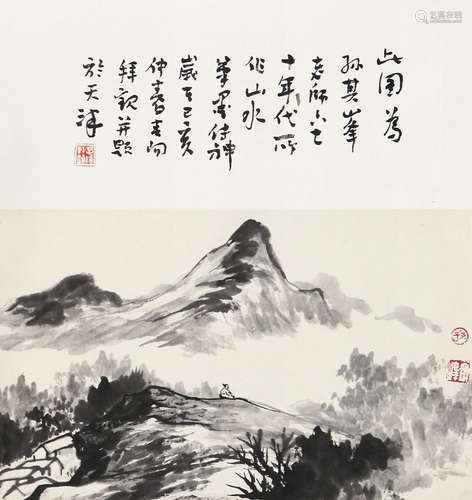 此图为
孙其峰
老师六七
十年代所
作山水
笔墨传神
岁在己亥
仲春春阳
拜观并题
於天津